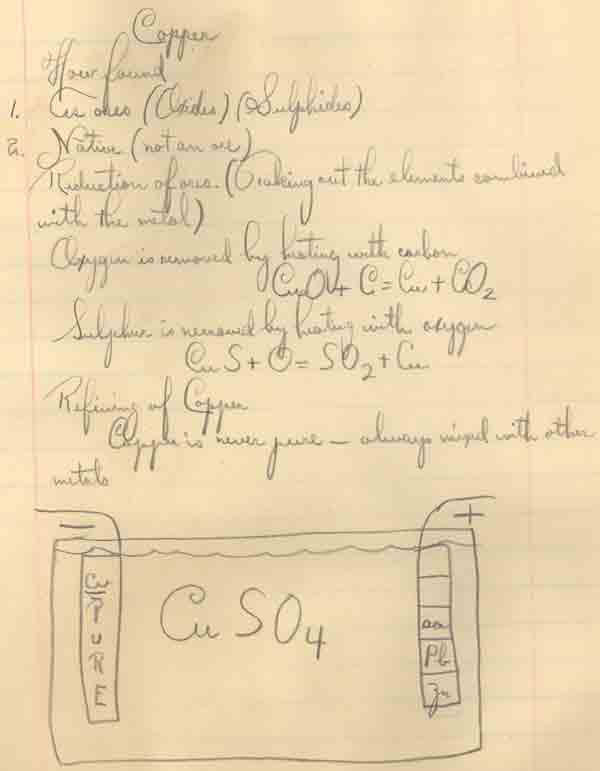 Copper
How found
1. As ores (Oxides) (Sulphides)
2. Native (not an ore)
Reduction of ores. (Taking out the elements combined
with the metal)
Oxygen is removed by heating with carbon
CuO + C = Cu + CO2
Sulphur is removed by heating with oxygen
CuS + O = SO2 + Cu
Refining of Copper
Copper is never pure — always mixed with other
metals
− +
Cu PURE
CuSO4
Pb
Zn